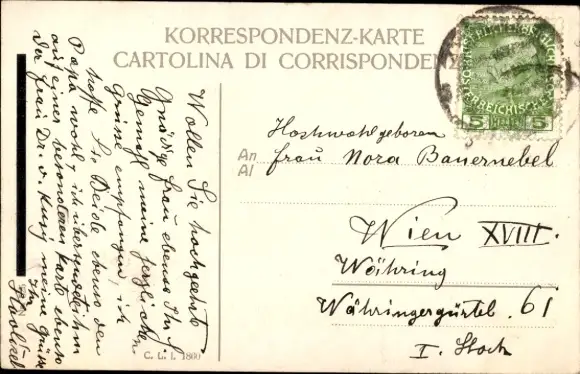 KORRESPONDENZ-KARTE
CARTOLINA DI CORRISPONDENZ
5 HELLER 5
Wollen Sie hochgeehrte
Gnädige Frau ebenso Ihr
Gemahl meine herzlichen
Grüsse empfangen, ich
hoffe Sie Beide ebenso den
Papa wohl, ich übersende ihm
auf einer besonderen Karte ebenso
der Frau Dr. v. meine Grüsse
Ihr
An
Al
Hochwohlgeboren
Frau Nora Bauernebel
Wien XVIII.
Währing
Währingergürtel. 61
I. Stock
C. L. I. 1800